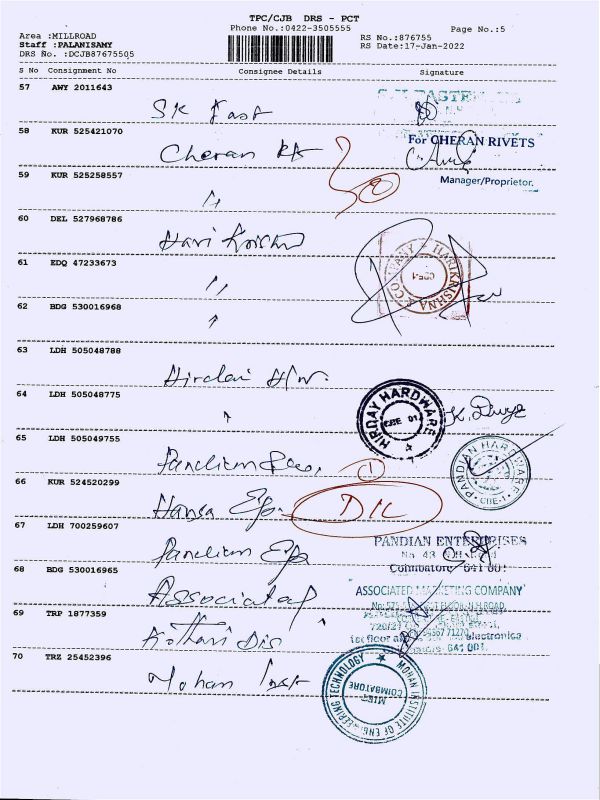 TPC/CJB DRS - PCT
Phone No.:0422-3505555
Page No.:5
Area :MILLROAD
RS No.:876755
Staff :PALANISAMY
RS Date:17-Jan-2022
DRS No. :DCJB87675505
S No Consignment No Consignee Details Signature
57 AWY 2011643
SK Fast
58 KUR 525421070
For CHERAN RIVETS
Cheran
59 KUR 525258557
Manager/Proprietor.
60 DEL 527968786
Hari Krishn
HARIKRISHNA
61 EDQ 47233673
62 BDG 530016968
63 LDH 505048788
Hirdai H/w.
64 LDH 505048775
HIRDAY HARDWARE
CBE 01
65 LDH 505049755
PANDIAN HARDWARE
CBE-1
66 KUR 524520299
1
Hansa Ep.
67 LDH 700259607
PANDIAN ENTERPRISES
Pandian Ep
Coimbatore 641 001
68 BDG 530016965
ASSOCIATED MARKETING COMPANY
Associated
69 TRP 1877359
Kothari Dis
70 TRZ 25452396
641 001.
Mohan Inst
MOHAN INSTITUTE OF ENGINEERING TECHNOLOGY
MIET
COIMBATORE